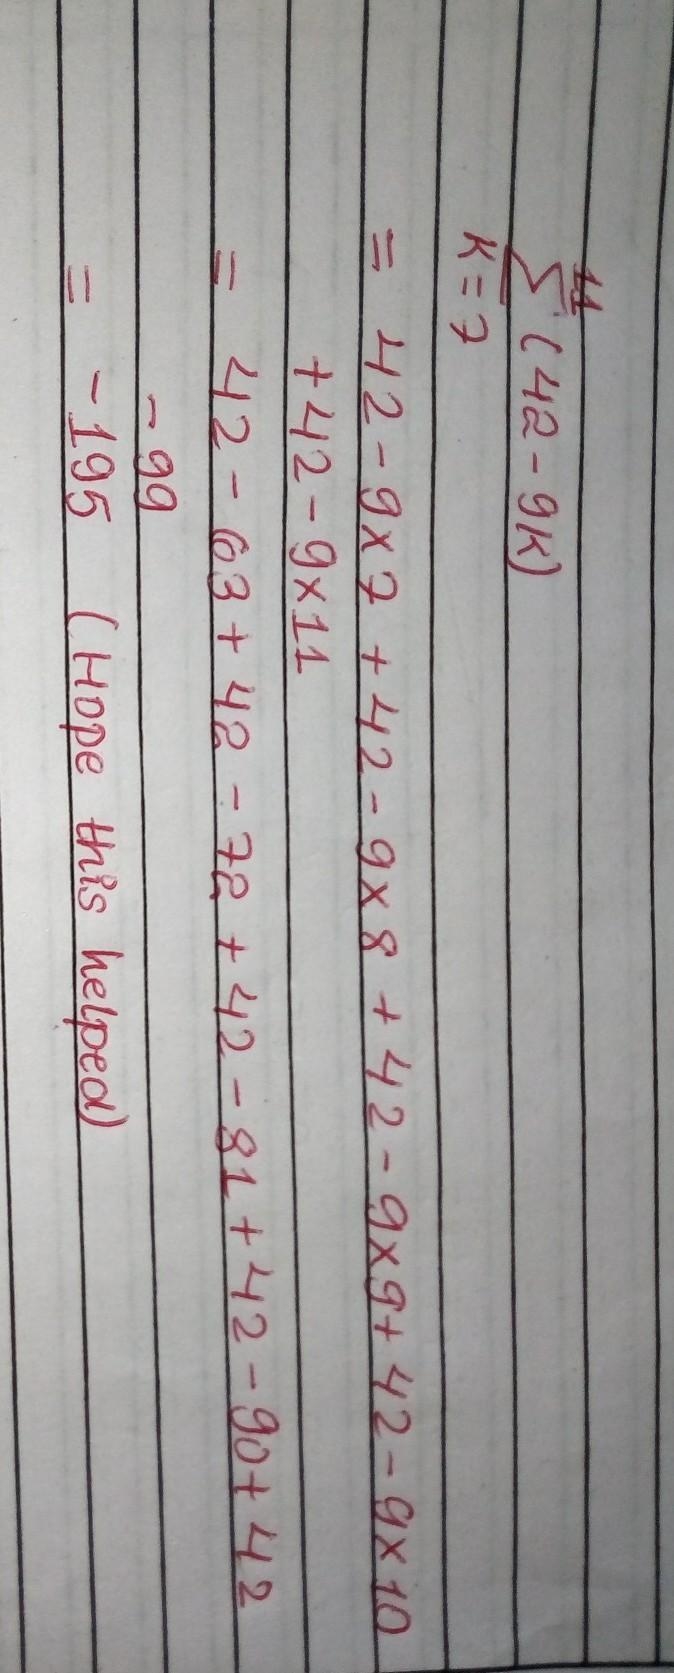 11
Σ (42-9K)
K=7
= 42-9×7+42-9×8+42-9×9+42-9×10
+42-9×11
= 42-63+42-72+42-81+42-90+42
-99
= -195 (Hope this helped)